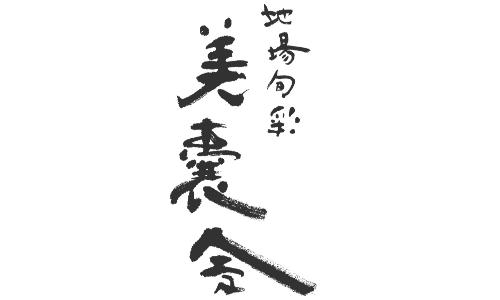 地場旬彩
美嚢会